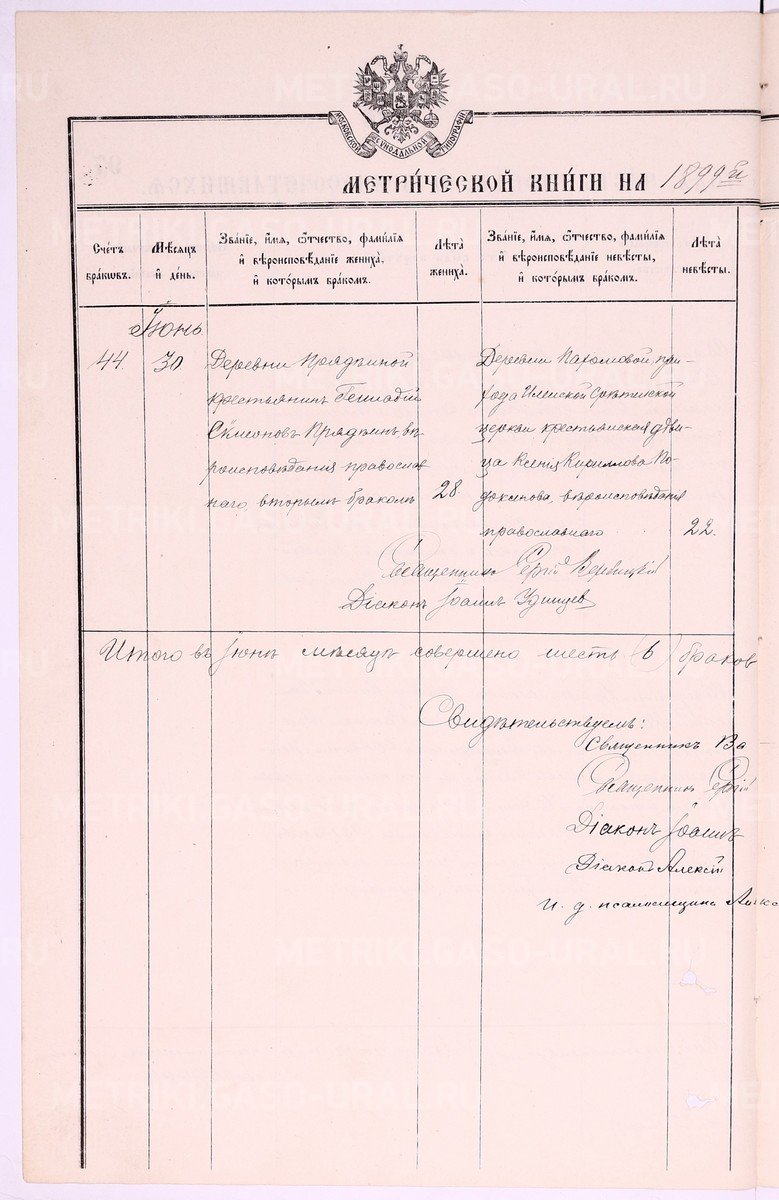 МОСКОВСКОЙ СѴНОДАЛЬНОЙ ТИПОГРАФІИ
МЕТРИ́ЧЕСКОЙ КНИ́ГИ НА 1899 й
Сче́тъ бра́кωвъ.
Мѣ́сяцъ и҆ де́нь.
Зва́нїе, и҆́мя, ѻ҆́тчество, фамі́лїя
и҆ вѣроисповѣ́данїе жениха̀,
и҆ кото́рымъ бра́комъ.
Лѣ́та жениха̀.
Зва́нїе, и҆́мя, ѻ҆́тчество, фамі́лїя
и҆ вѣроисповѣ́данїе невѣ́сты,
и҆ кото́рымъ бра́комъ.
Лѣ́та невѣ́сты.
Іюнь
44. 30.
Деревни Прядѣиной
крестьянинъ Геннадій
Сѵмеоновъ Прядеинъ, вѣ-
роисповѣданія православ
наго, вторымъ бракомъ
28.
Деревни Пахомовой, при-
хода Срѣтенской
церкви крестьянская дѣви-
ца Ксенія Кириллова
вѣроисповѣданія
православнаго
22.
Священникъ Сергій
Діаконъ Іоаннъ Удинцев
Итого въ Іюнѣ мѣсяцѣ совершено шесть (6) браков
Свидѣтельствуемъ:
Священникъ Ва
Священникъ Сергій
Діаконъ Іоаннъ
Діаконъ Алексій
И. д. псаломщика
METRIKI.GASO-URAL.RU